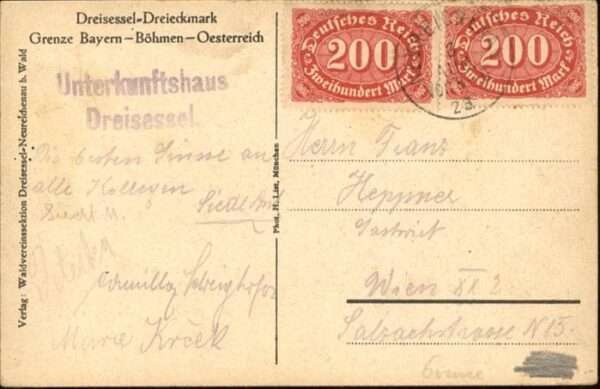 Dreisessel-Dreieckmark
Grenze Bayern—Böhmen—Oesterreich
Unterkunftshaus
Dreisessel
Verlag: Waldvereinssektion Dreisessel-Neureichenau b. Wald
Phot. H. List, München
Deutsches Reich
200
Zweihundert Mark
Deutsches Reich
200
Zweihundert Mark
Die besten Grüsse an
alle
Marie Krček
Herrn Franz
Heppner
Gastwirt
Wien XX 2
Salzachstrasse N 15.